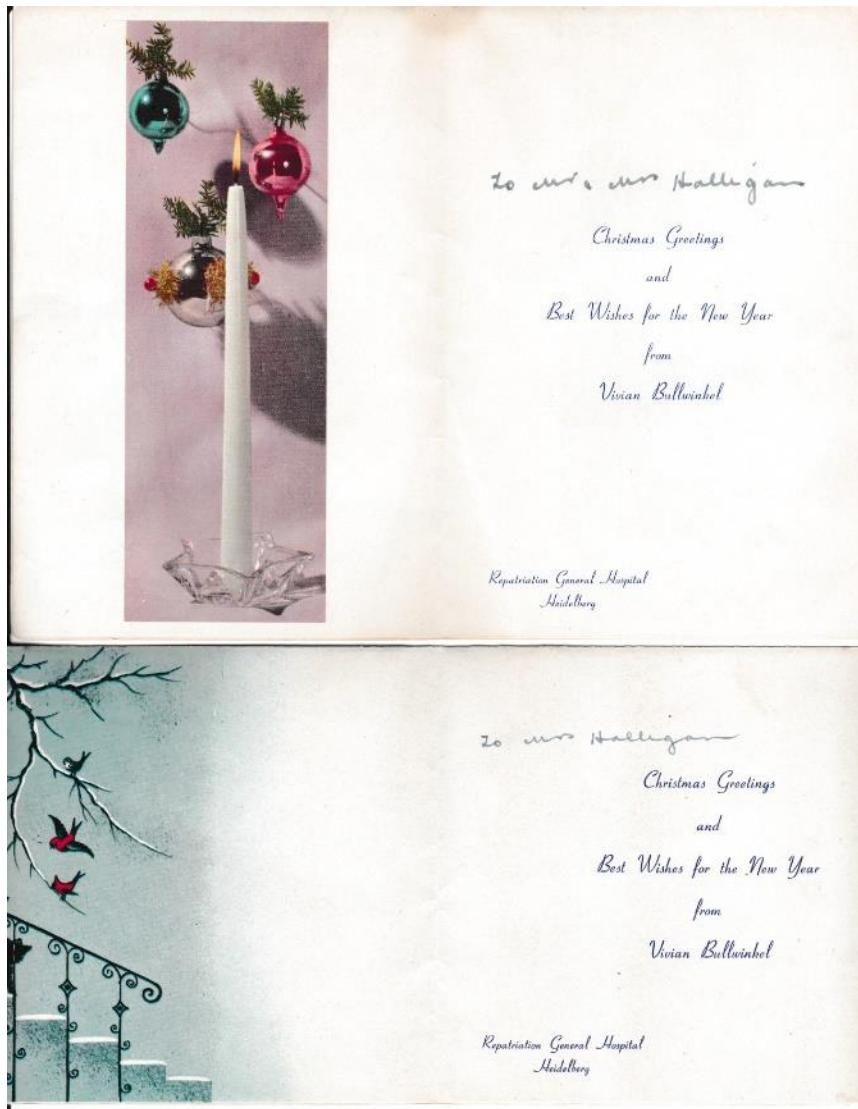 To Mr & Mrs Halligan
Christmas Greetings
and
Best Wishes for the New Year
from
Vivian Bullwinkel
Repatriation General Hospital
Heidelberg
To Mrs Halligan
Christmas Greetings
and
Best Wishes for the New Year
from
Vivian Bullwinkel
Repatriation General Hospital
Heidelberg